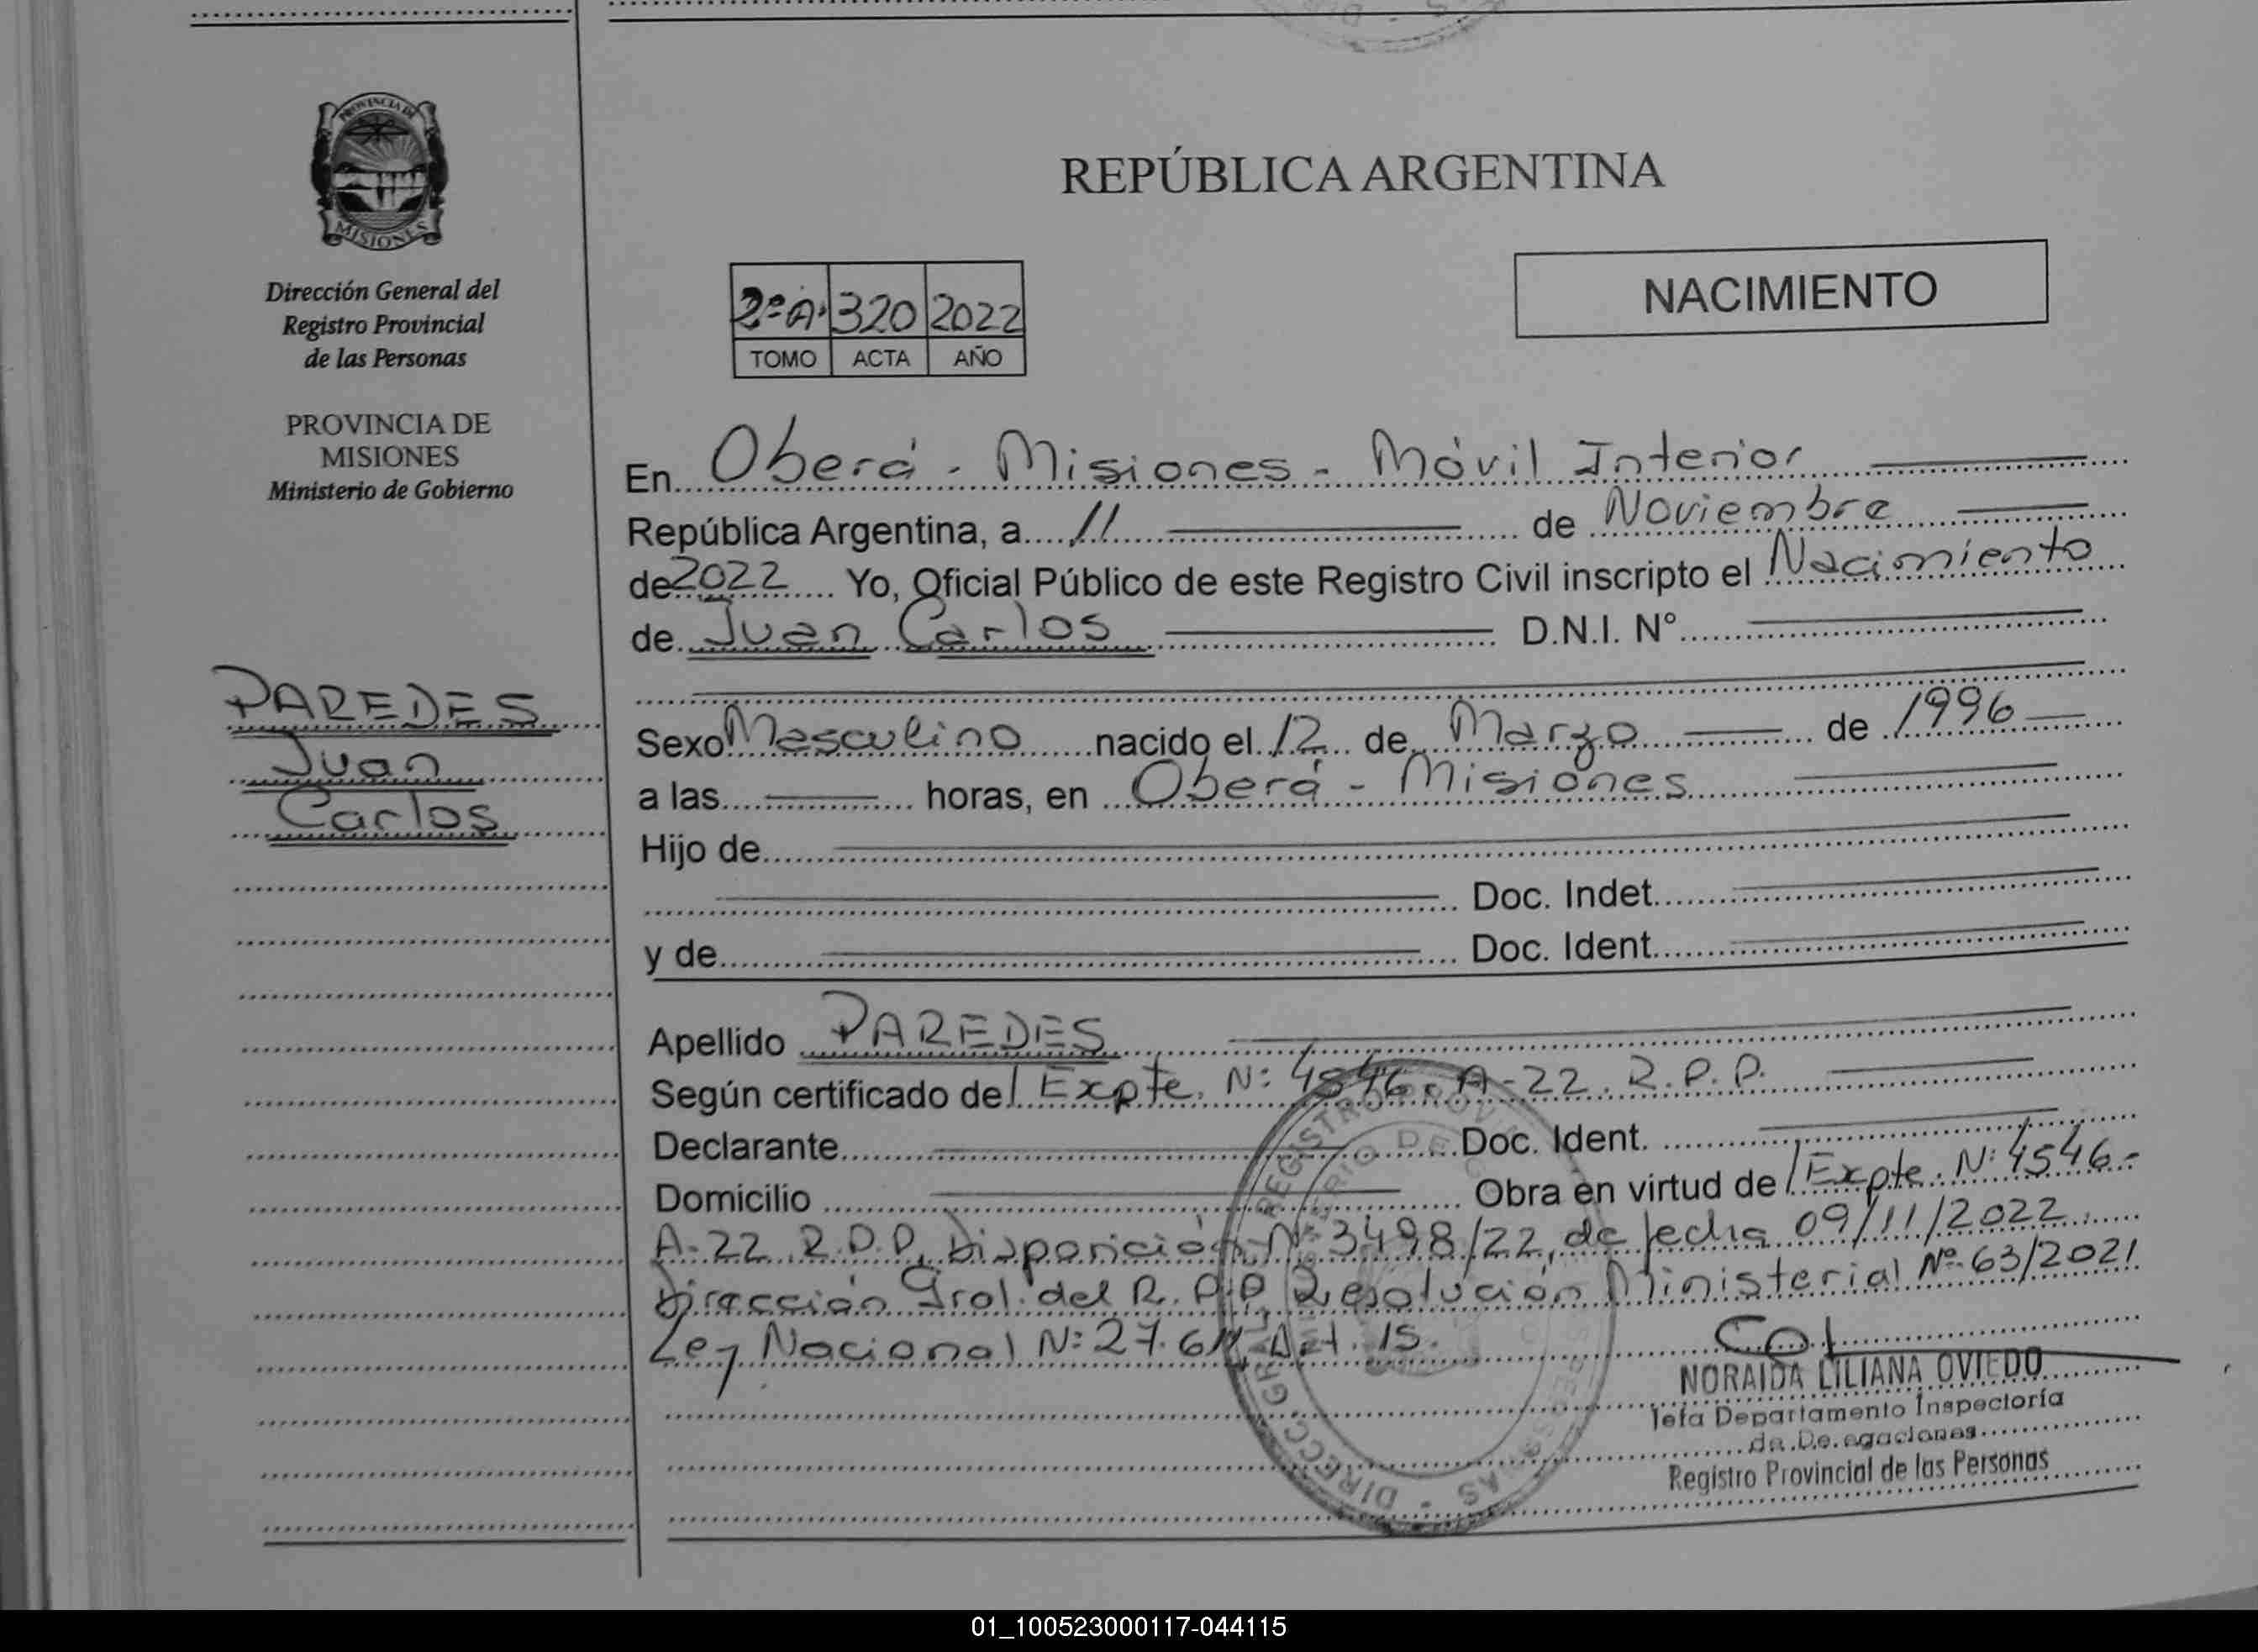 PROVINCIA DE
MISIONES
Dirección General del
Registro Provincial
de las Personas
PROVINCIA DE
MISIONES
Ministerio de Gobierno
PAREDES
Juan
Carlos
REPÚBLICA ARGENTINA
NACIMIENTO
2º A. 320 2022
TOMO ACTA AÑO
En Oberá - Misiones - Móvil Interior
República Argentina, a 11 de Noviembre
de 2022 Yo, Oficial Público de este Registro Civil inscripto el Nacimiento
de Juan Carlos D.N.I. N°
Sexo Masculino nacido el 12 de Marzo de 1996
a las horas, en Oberá - Misiones
Hijo de
Doc. Indet.
y de Doc. Ident.
Apellido PAREDES
Según certificado de Expte. N: 4546. A-22. R.P.P.
Declarante Doc. Ident.
Domicilio Obra en virtud de Expte. N: 4546.-
A-22. R.P.P. Disposición N: 3498/22, de fecha 09/11/2022.
Dirección Gral. del R.P.P Resolución Ministerial Nº 63/2021
Ley Nacional N: 27.611 Art. 15.
NORAIDA LILIANA OVIEDO
Jefa Departamento Inspectoría
de Delegaciones
Registro Provincial de las Personas
01_100523000117-044115